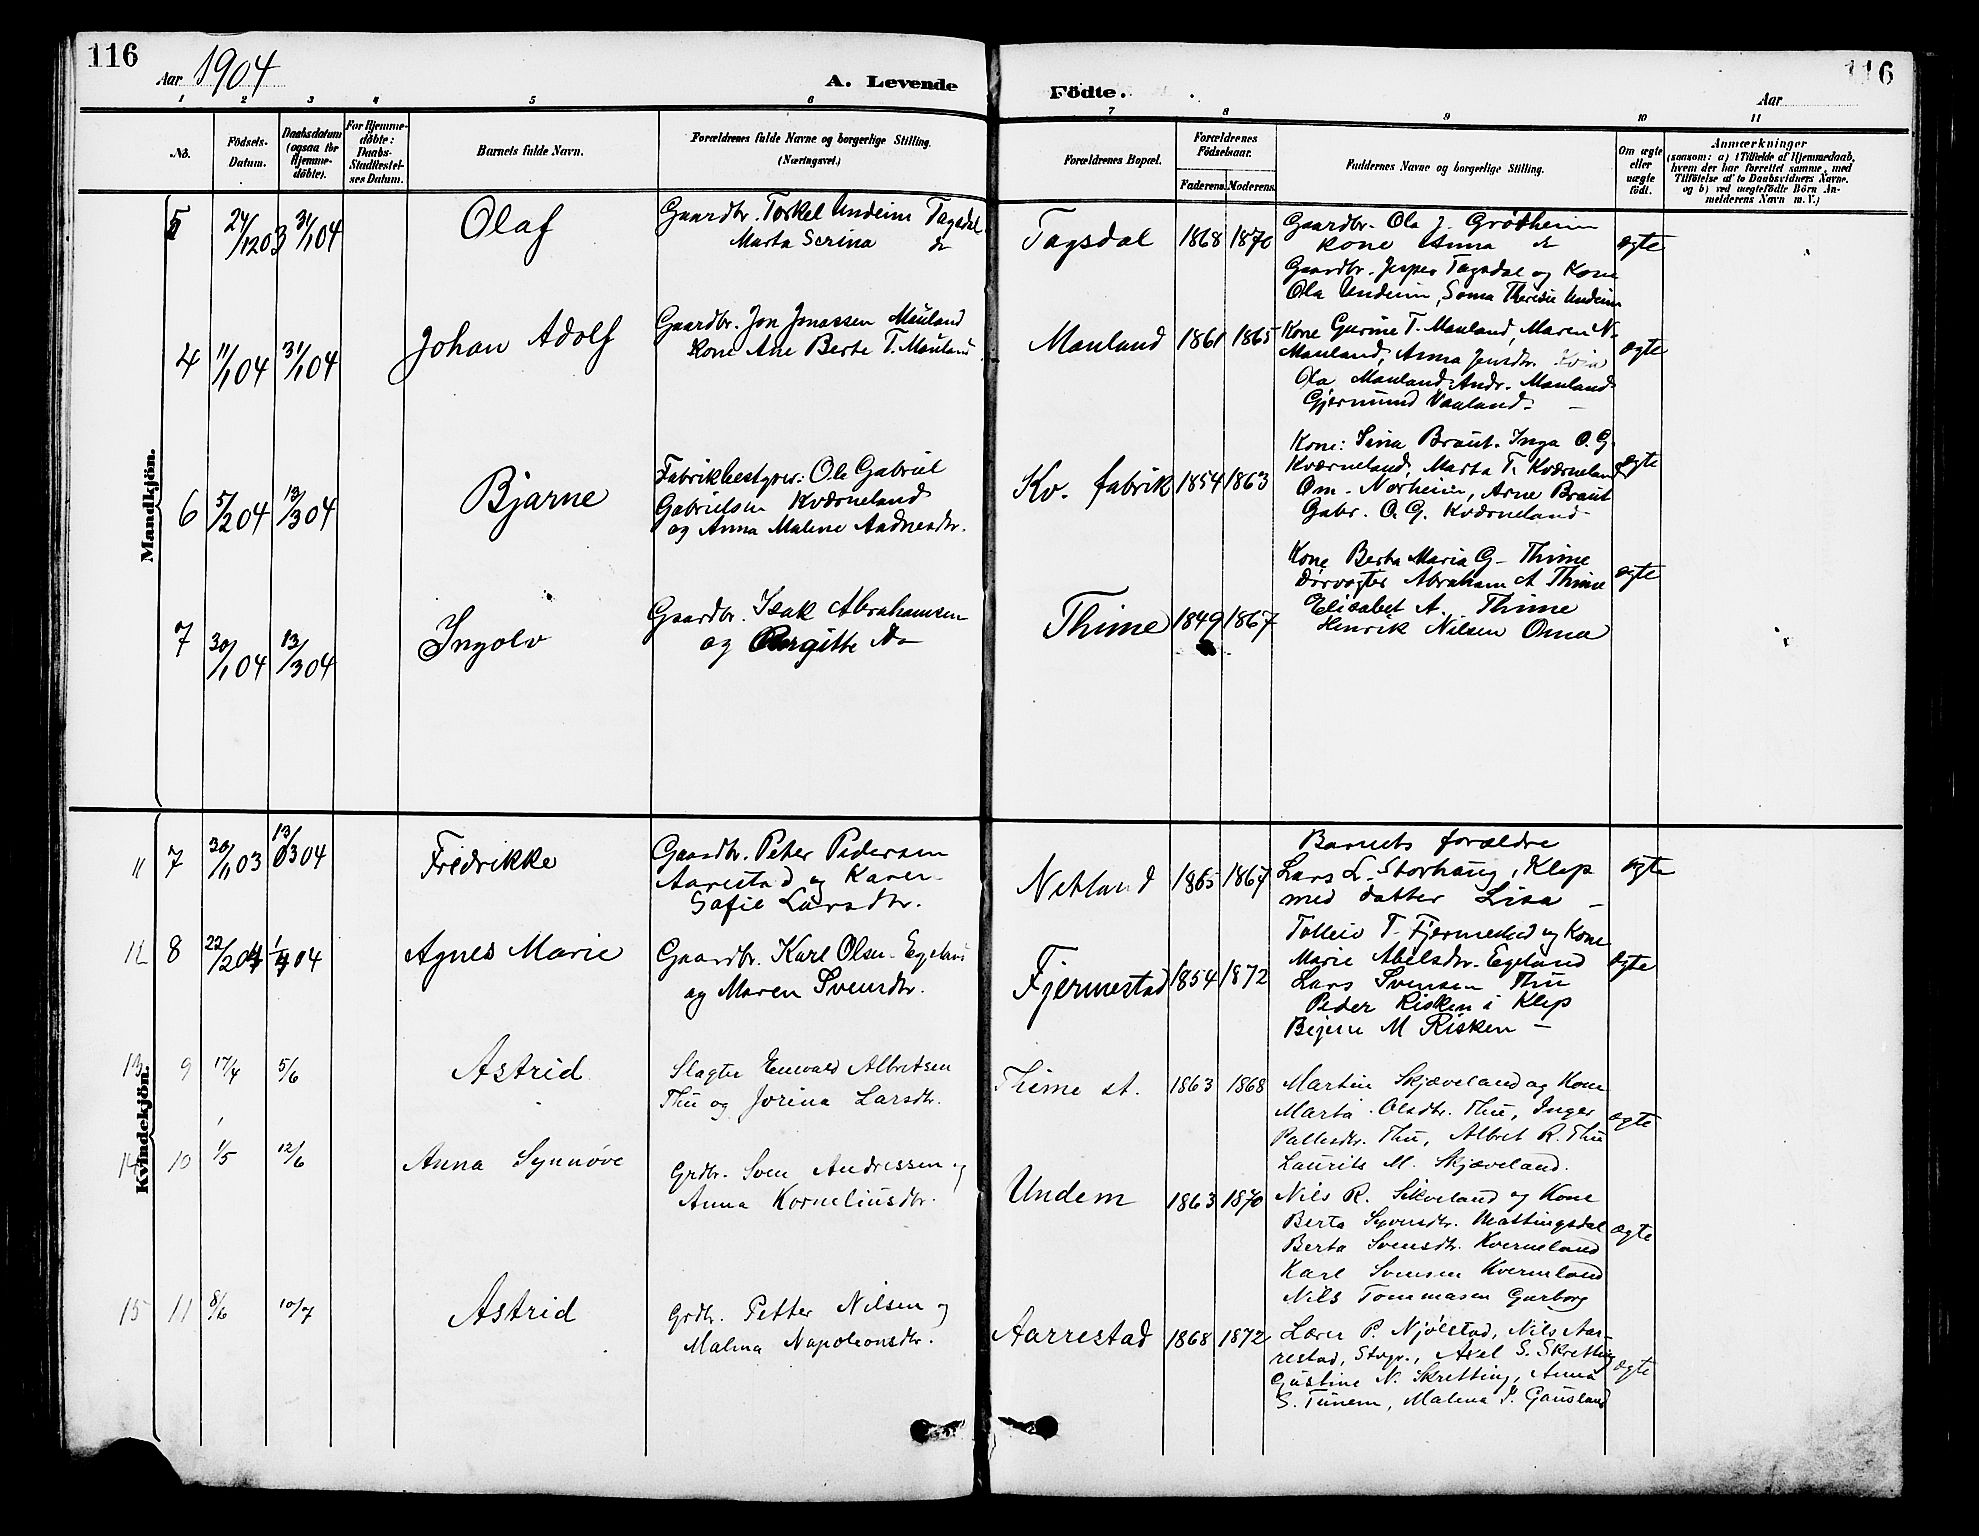 116
Aar 1904
A. Levende
Födte.
Aar
116
1 2 3 4 5 6 7 8 9 10 11
No.
Födsels-
Datum.
Daabsdatum
(ogsaa for
Hjemme-
döbte).
For Hjemme-
döbte:
Daabs-
Stadfæstel-
ses Datum.
Barnets fulde Navn.
Forældrenes fulde Navne og borgerlige Stilling.
(Næringsvei.)
Forældrenes Bopæl.
Forældrenes
Födselsaar.
Faderens. Moderens.
Faddernes Navne og borgerlige Stilling.
Om ægte
eller
uægte
födt.
Anmærkninger
(saasom: a) i Tilfælde af Hjemmedaab,
hvem der har forrettet samme, med
Tilföielse af to Daabsvidners Navne.
og b) ved uægtefödte Börn An-
melderens Navn m. V.)
Mandkjön.
5 24/12 03 31/1 04 Olaf
Gaardbr. Torkel Undeim Tagsdal
Marta Serina do
Tagsdal 1868 1870
Gaardbr. Ola J. Grötheim
Kone Anna do
Gaardbr. Jesper Tagsdal og Kone
Ola Undeim, Soma Theresie Undeim
ægte
4 11/1 04 31/1 04 Johan Adolf
Gaardbr. Jon Jonassen Mauland
Kone Ane Berte T. Mauland
Mauland 1861 1865
Kone Gurine T. Mauland, Maren N.
Mauland, Anna Jensdtr.
Ola Mauland, Andr. Mauland
Gjermund Vauland.
ægte
6 5/2 04 13/3 04 Bjarne
Fabrikbestyrer: Ole Gabriel
Gabrielsen Kværneland
og Anna Malene Aadnesdtr.
Kv. fabrik 1854 1863
Kone: Sina Braut. Inga O. G.
Kværneland, Marta T. Kværneland
Om. Norheim, Arne Braut
Gabr. O. G. Kværneland
ægte
7 30/1 04 13/3 04 Ingolv
Gaardbr. Isak Abrahamsen
og Birgitte do
Thime 1849 1867
Kone Berta Maria G. Thime
Dørvogter Abraham A Thime
Elisabet A. Thime
Henrik Nilsen Oma
ægte
Kvindekjön.
" 7 30/11 03 13/03 04 Fredrikke
Gaardbr. Peter Pedersen
Aarestad og Karen
Sofie Larsdtr.
Netland 1865 1867
Barnets forældre
Lars L. Storhaug, Klep
med datter Lisa
ægte
12 8 22/2 04 1/4 04 Agnes Marie
Gaardbr. Karl Olsen Egeland
og Maren Svensdtr.
Fjermestad 1854 1872
Tolleiv T. Fjermestad og Kone
Marie Abelsdtr. Egeland
Lars Svensen Thu
Peder Risken i Klep
M Risken
ægte
13 9 17/4 5/6 Astrid
Slagter Enevald Albretsen
Thu og Jorina Larsdtr.
Thime st. 1863 1868
Martin Skjæveland og Kone
Marta Olsdtr. Thu, Inger
Pallesdtr. Thu, Albret R. Thu
Laurits M. Skjæveland.
ægte
14 10 1/5 12/6 Anna Synnøve
Grdbr. Sven Andressen og
Anna Korneliusdtr.
Undem 1863 1870
Nils R. Sikveland og Kone
Berta Syvensdtr. Mattingsdal
Berta Svensdtr. Kverneland
Karl Svensen Kverneland
Nils Tommasen Gurborg
ægte
15 11 8/6 10/7 Astrid
Grdbr. Petter Nilsen og
Malena Napoleonsdtr.
Aarrestad 1868 1872
Lærer P. Njölstad, Nils Aar-
restad, Stvgr., Axel S. Skretting
Gustine N. Skretting, Anna
S. Tunem, Malena P. Gausland
ægte